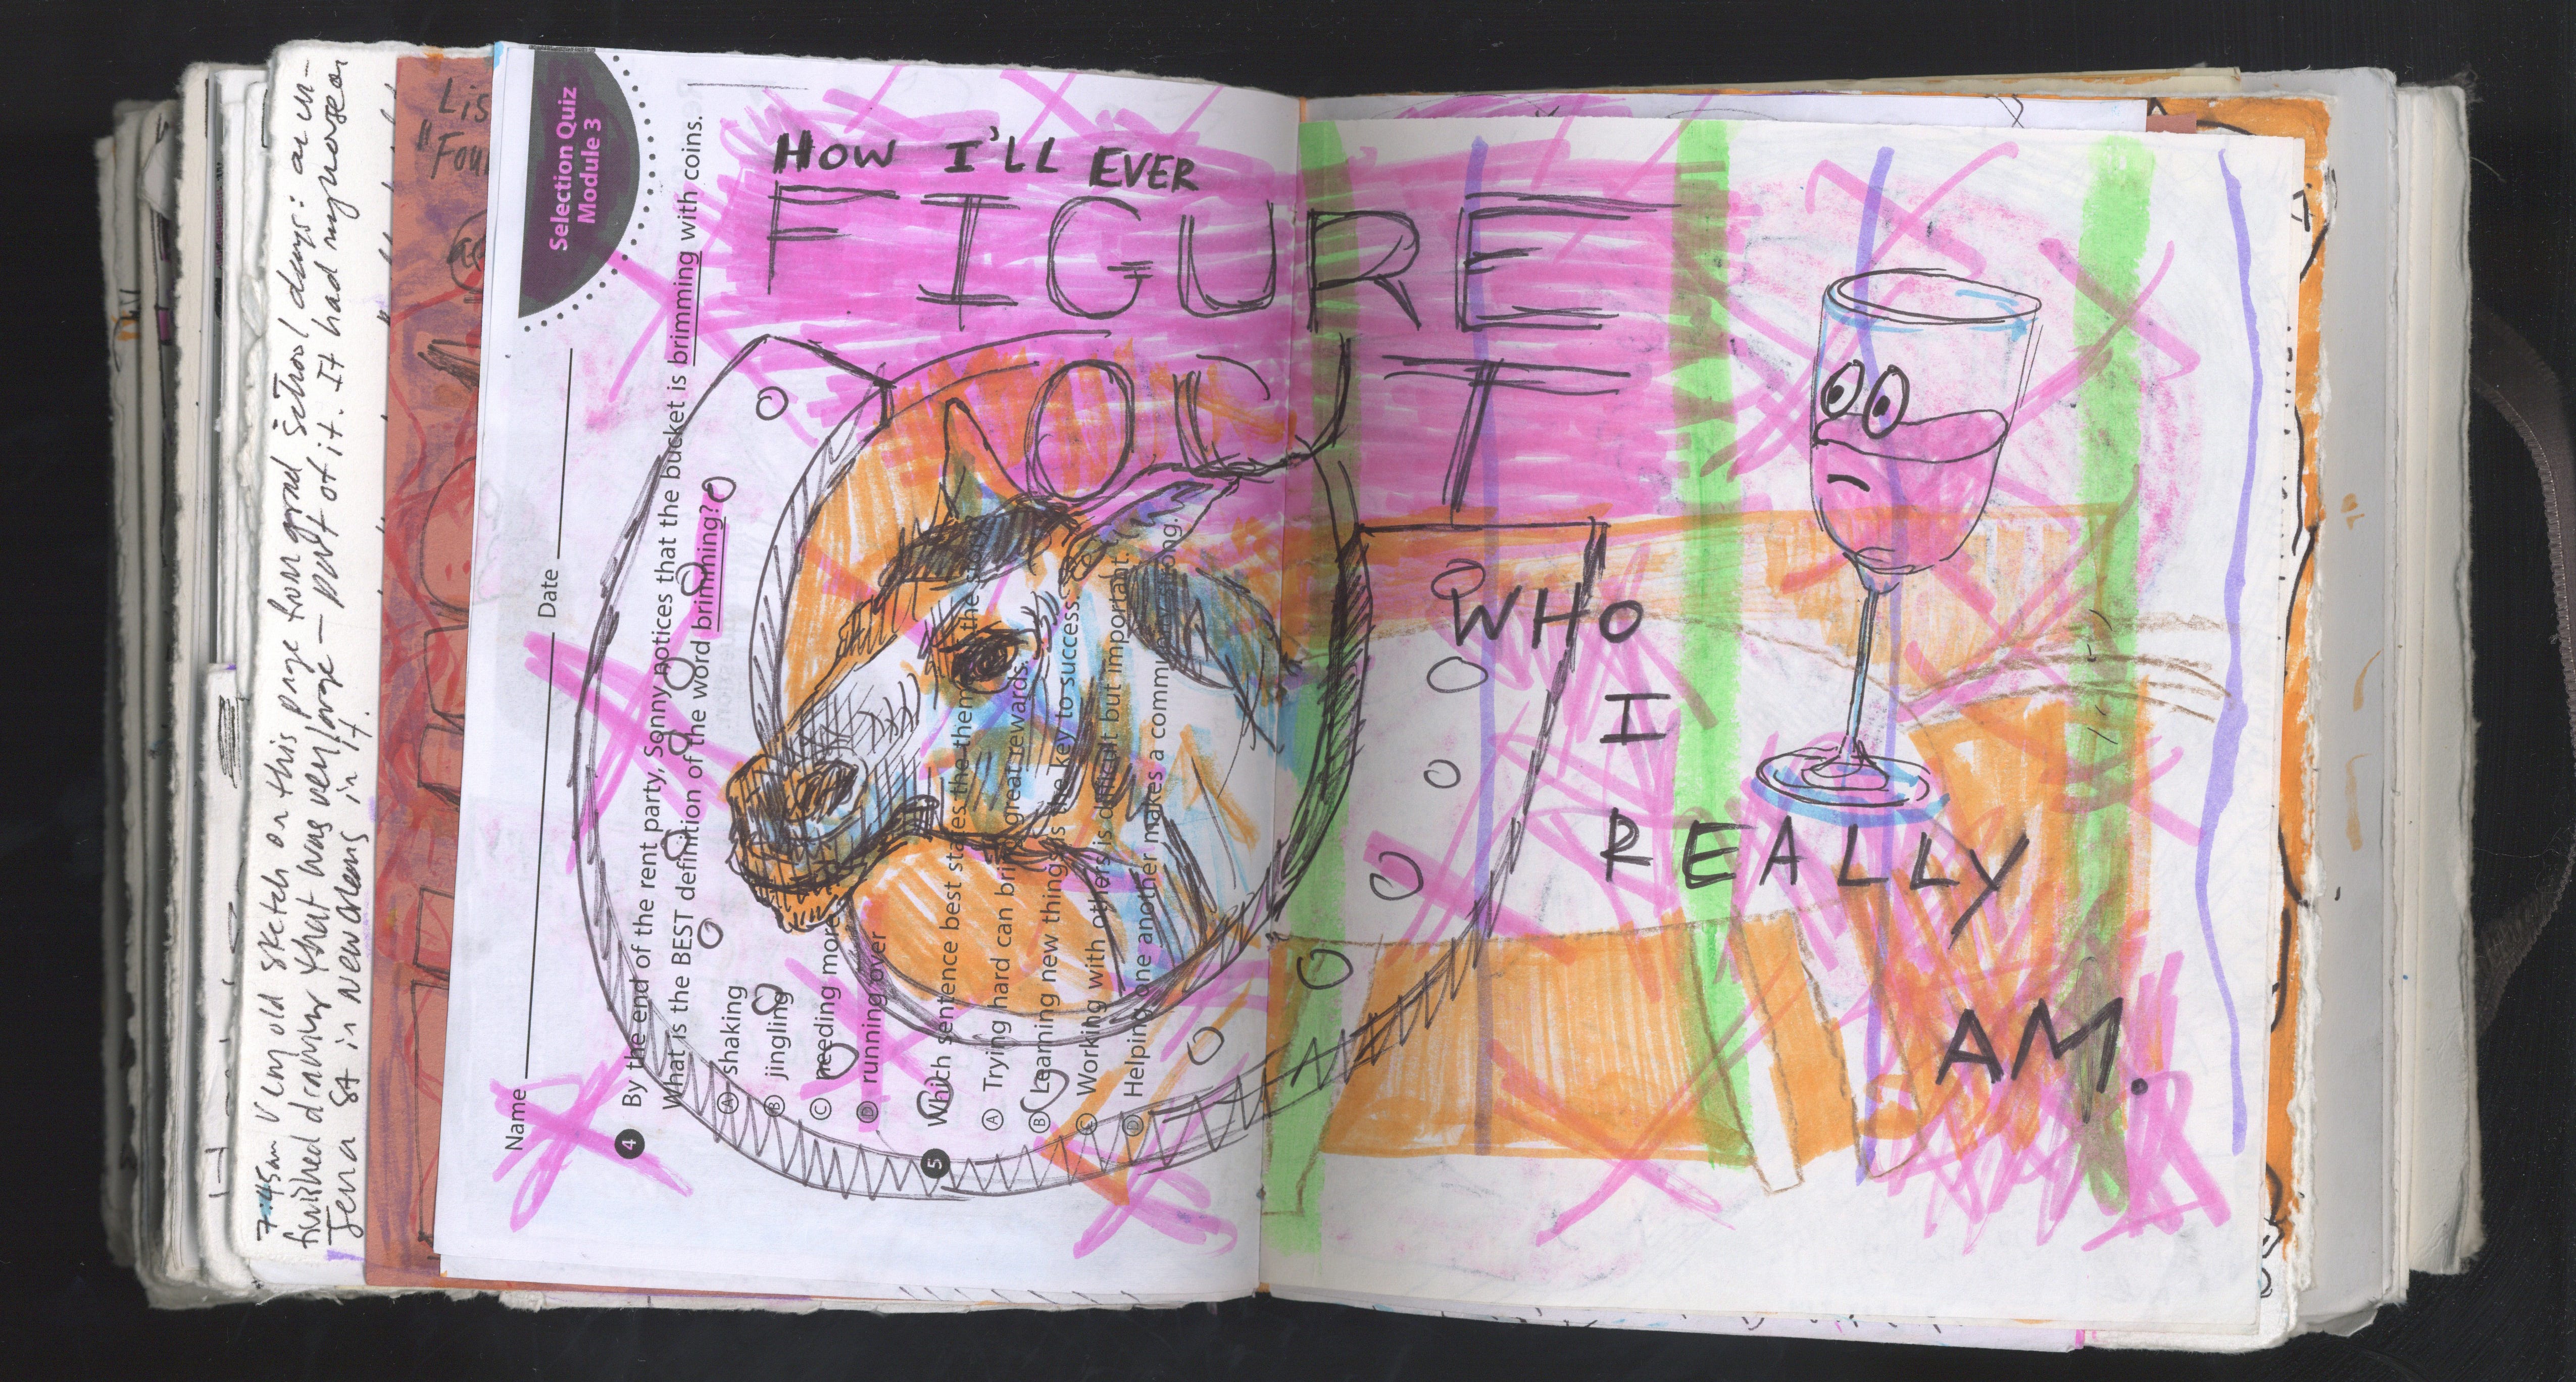 7:45am Very old sketch on this page from grad school days: an un-
finished drawing that was very large — part of it. It had my horse on
Jena St in New Orleans in it.
Lis
"Four
Selection Quiz
Module 3
Name Date
4 By the end of the rent party, Sonny notices that the bucket is brimming with coins.
What is the BEST definition of the word brimming?
A shaking
B jingling
C needing more
D running over
5 Which sentence best states the theme of the story?
A Trying hard can bring great rewards.
B Learning new things is the key to success.
C Working with others is difficult but important.
D Helping one another makes a community strong.
HOW I'LL EVER
FIGURE
OUT
WHO
I
REALLY
AM.